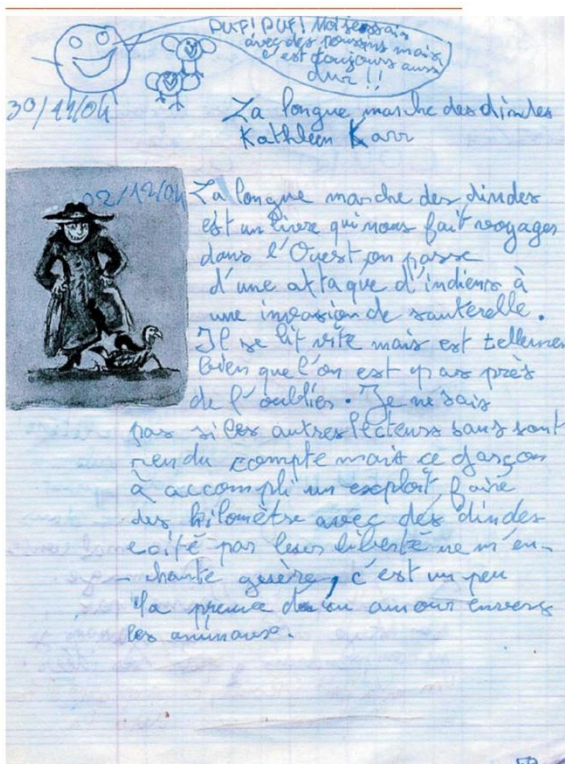 PUF! PUF! Moi j'essais
avec des poussins mais
c'est toujours aussi
dur !!
30/11/04
La longue marche des dindes
Kathleen Karr
02/12/04 La longue marche des dindes
est un livre qui nous fait voyages
dans l'Ouest, on passe
d'une attaque d'indiens à
une invasion de sauterelle.
Il se lit vite mais est tellement
bien que l'on est pas près
de l'oublier. Je ne sais
pas si les autres lecteurs sans sont
rendu compte mais ce garçon
à accompli un exploit, faire
des kilomètre avec des dindes
exité par leur liberté ne m'en-
-chante guère, c'est un peu
la preuve d'un amour envers
les animaux.